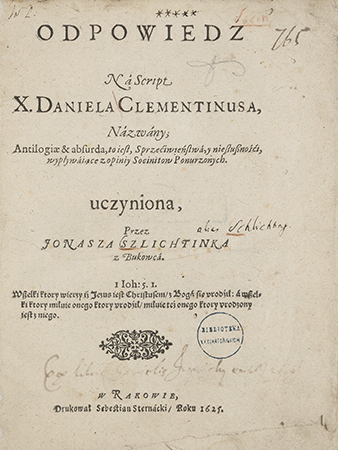 ODPOWIEDZ
765
Ná Script
X. DANIELA CLEMENTINUSA,
Názwány;
Antilogiæ & absurda, to iest, Sprzeciwieństwá, y niesłusznośći,
wypływáiące z opiniy Socinitow Ponurzonych.
uczyniona,
Przez
JONASZA SZLICHTINKA
z Bukowcá.
1 Ioh: 5. 1.
Wszelki ktory wierzy iż Jezus iest Christusem / z Bogá się vrodźił: á wszel-
ki ktory miłuie onego ktory vrodźił / miłuie też onego ktory vrodzony
iest z niego.
BIBLIOTEKA
W RAKOWIE,
Drukował Sebestian Sternacki / Roku 1625.